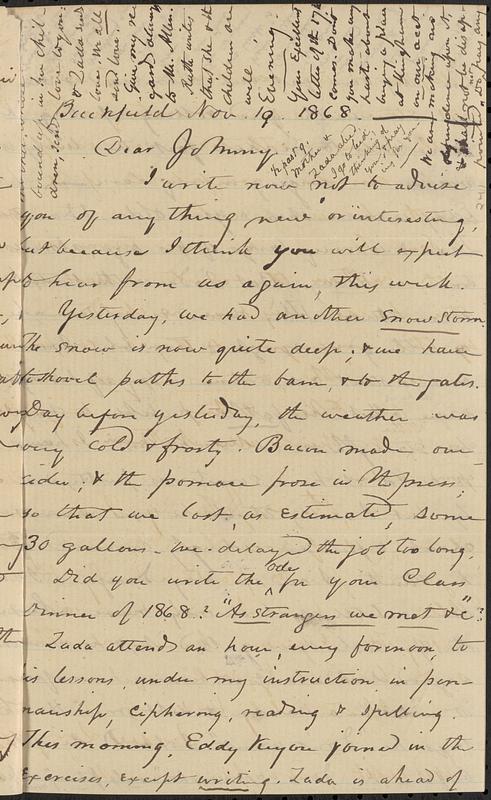 Buckfield Nov. 19. 1868
Dear Johnny.
I write now not to advise
you of any thing new or interesting,
but because I think you will expect
to hear from us again, this week.
Yesterday, we had another snow storm.
the snow is now quite deep; & we have
to shovel paths to the barn, & to the gates.
Day before yesterday, the weather was
very cold & frosty. Bacon made our
cider; & the pomace froze in the press;
so that we lost, as estimated, some
30 gallons. We delayed the job too long.
Did you write the Ode for your Class
Dinner of 1868? "As strangers we met &c"?
Zada attends an hour, every forenoon, to
his lessons, under my instruction in pen-
manship, ciphering, reading & spelling.
This morning, Eddy joined in the
exercises, except writing. Zada is ahead of
½ past 9.
Mother &
Zada abed
I go to bed,
thinking of
you & pray-
ing for you
bound up in her chil-
dren, sends love to you
& Zada sends
love. We all
send love.
Give my re-
gard
to Mr. Allen.
Ruth writes
that she & the
children are
well.
Evening
Your
letter of the 17th
comes. Don't
you make any
haste about
buying a place
at Hingham
on our acct.
We are making no
dependence upon it,
& shall not be disap-
pointed